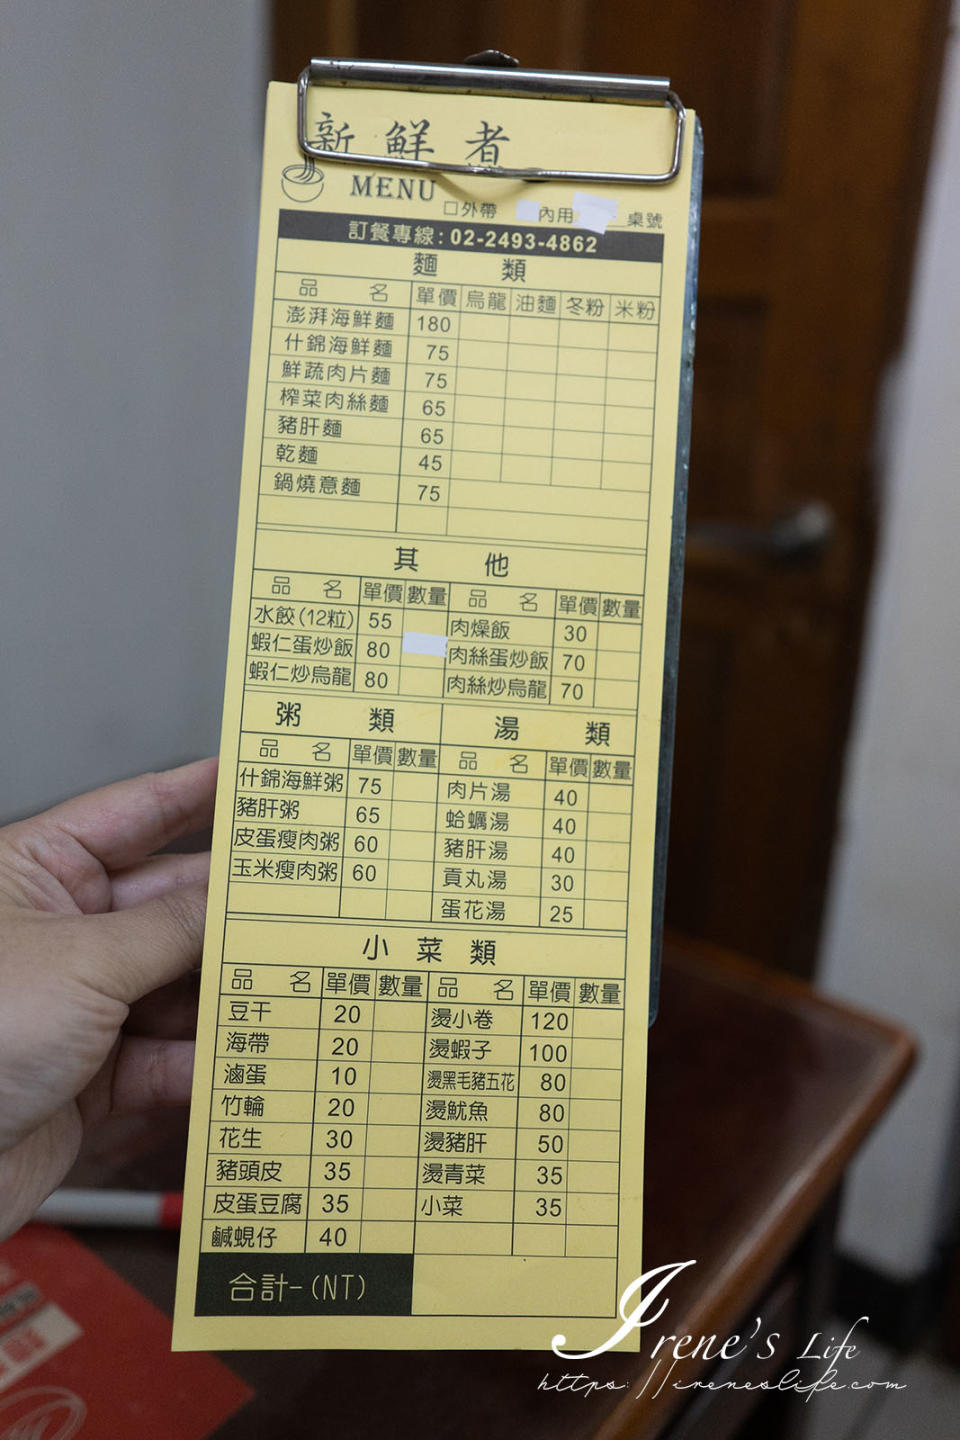 新鮮煮
MENU
□外帶 內用 桌號
訂餐專線:02-2493-4862
麵 類
品 名 單價 烏龍 油麵 冬粉 米粉
澎湃海鮮麵 180
什錦海鮮麵 75
鮮蔬肉片麵 75
榨菜肉絲麵 65
豬肝麵 65
乾麵 45
鍋燒意麵 75
其 他
品 名 單價 數量 品 名 單價 數量
水餃(12粒) 55 肉燥飯 30
蝦仁蛋炒飯 80 肉絲蛋炒飯 70
蝦仁炒烏龍 80 肉絲炒烏龍 70
粥 類 湯 類
品 名 單價 數量 品 名 單價 數量
什錦海鮮粥 75 肉片湯 40
豬肝粥 65 蛤蠣湯 40
皮蛋瘦肉粥 60 豬肝湯 40
玉米瘦肉粥 60 貢丸湯 30
蛋花湯 25
小菜類
品 名 單價 數量 品 名 單價 數量
豆干 20 燙小卷 120
海帶 20 燙蝦子 100
滷蛋 10 燙黑毛豬五花 80
竹輪 20 燙魷魚 80
花生 30 燙豬肝 50
豬頭皮 35 燙青菜 35
皮蛋豆腐 35 小菜 35
鹹蜆仔 40
合計-(NT)
Irene's Life
https://ireneslife.com